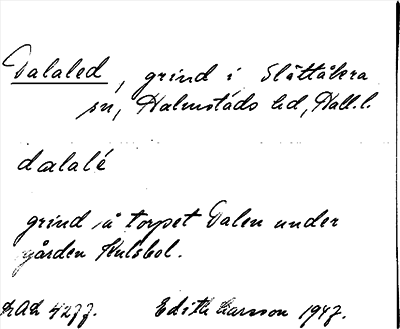 Dalaled, grind i Slättåkra
sn, Halmstads hd, Hall.l.
dalalé
grind å torpet Dalen under
gården Kulsbol.
LAL 4277. Edith Larsson 1947.